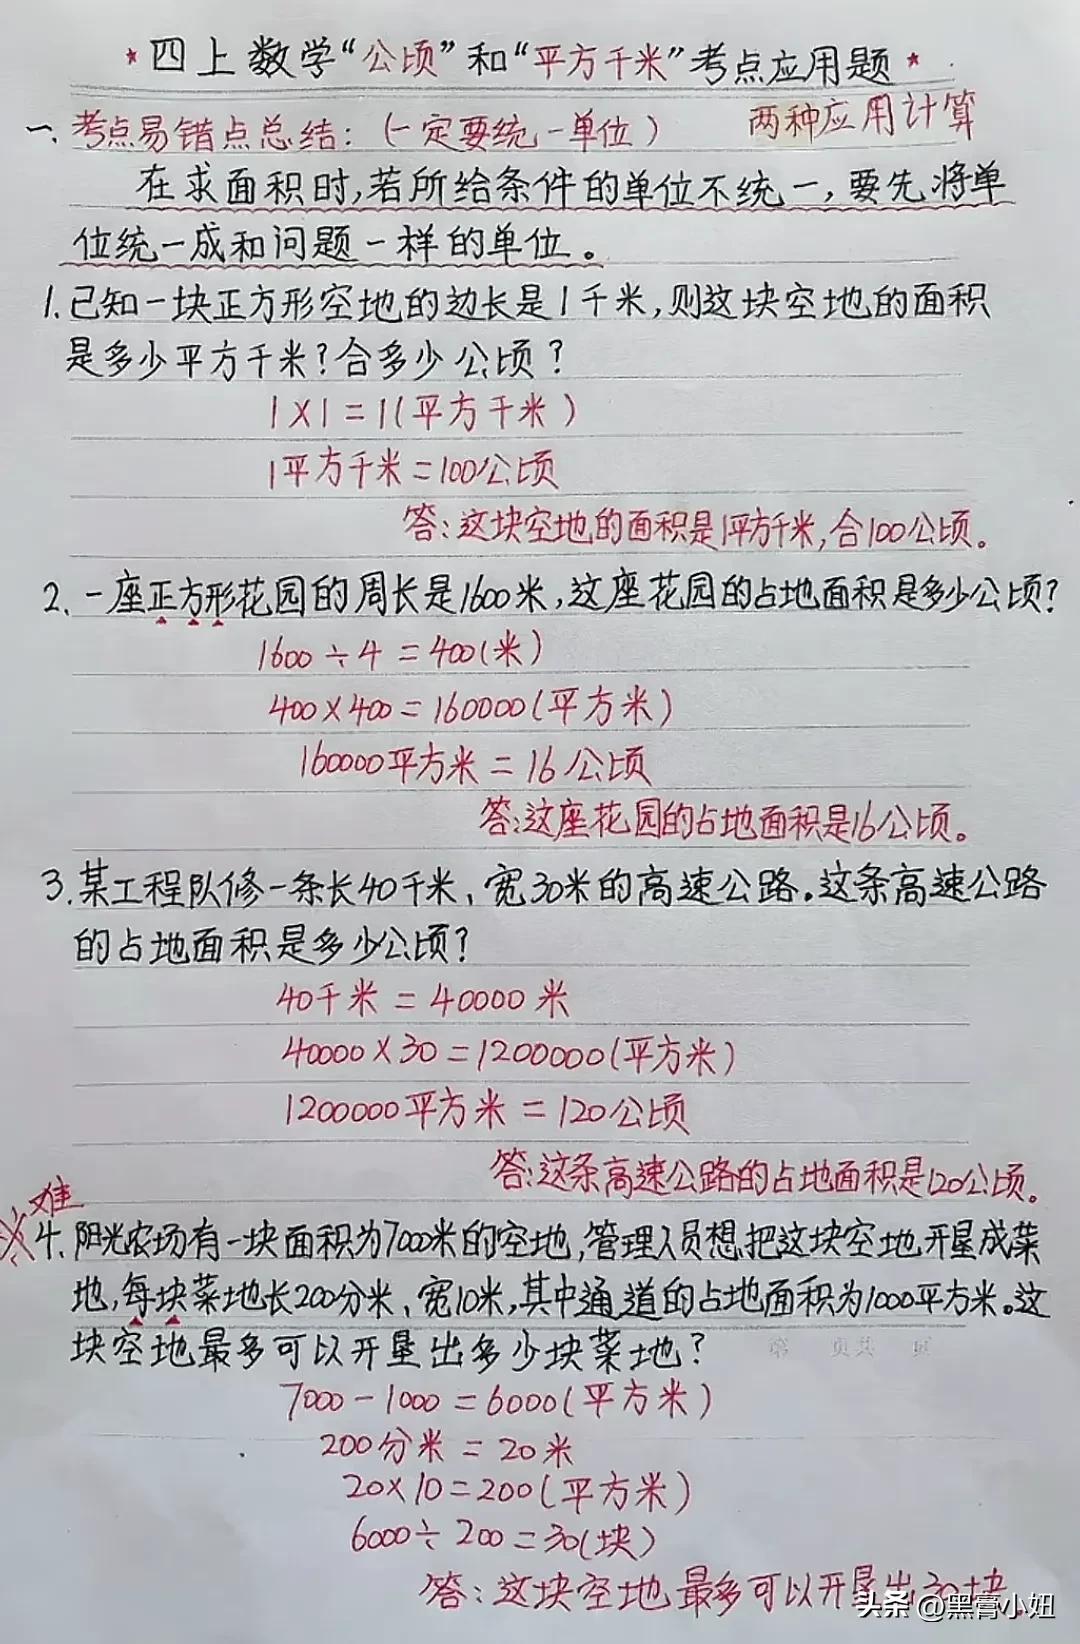 ★四上数学“公顷”和“平方千米”考点应用题★
一、考点易错点总结:(一定要统一单位) 两种应用计算
在求面积时,若所给条件的单位不统一,要先将单
位统一成和问题一样的单位。
1.已知一块正方形空地的边长是1千米,则这块空地的面积
是多少平方千米?合多少公顷?
1×1=1(平方千米)
1平方千米=100公顷
答:这块空地的面积是1平方千米,合100公顷。
2.一座正方形花园的周长是1600米,这座花园的占地面积是多少公顷?
1600÷4=400(米)
400×400=160000(平方米)
160000平方米=16公顷
答:这座花园的占地面积是16公顷。
3.某工程队修一条长40千米、宽30米的高速公路。这条高速公路
的占地面积是多少公顷?
40千米=40000米
40000×30=1200000(平方米)
1200000平方米=120公顷
答:这条高速公路的占地面积是120公顷。
难
※4.阳光农场有一块面积为7000米的空地,管理人员想把这块空地开垦成菜
地,每块菜地长200分米、宽10米,其中通道的占地面积为1000平方米。这
块空地最多可以开垦出多少块菜地?
第 页共 页
7000-1000=6000(平方米)
200分米=20米
20×10=200(平方米)
6000÷200=30(块)
答:这块空地最多可以开垦出30块。
头条@黑膏小妞